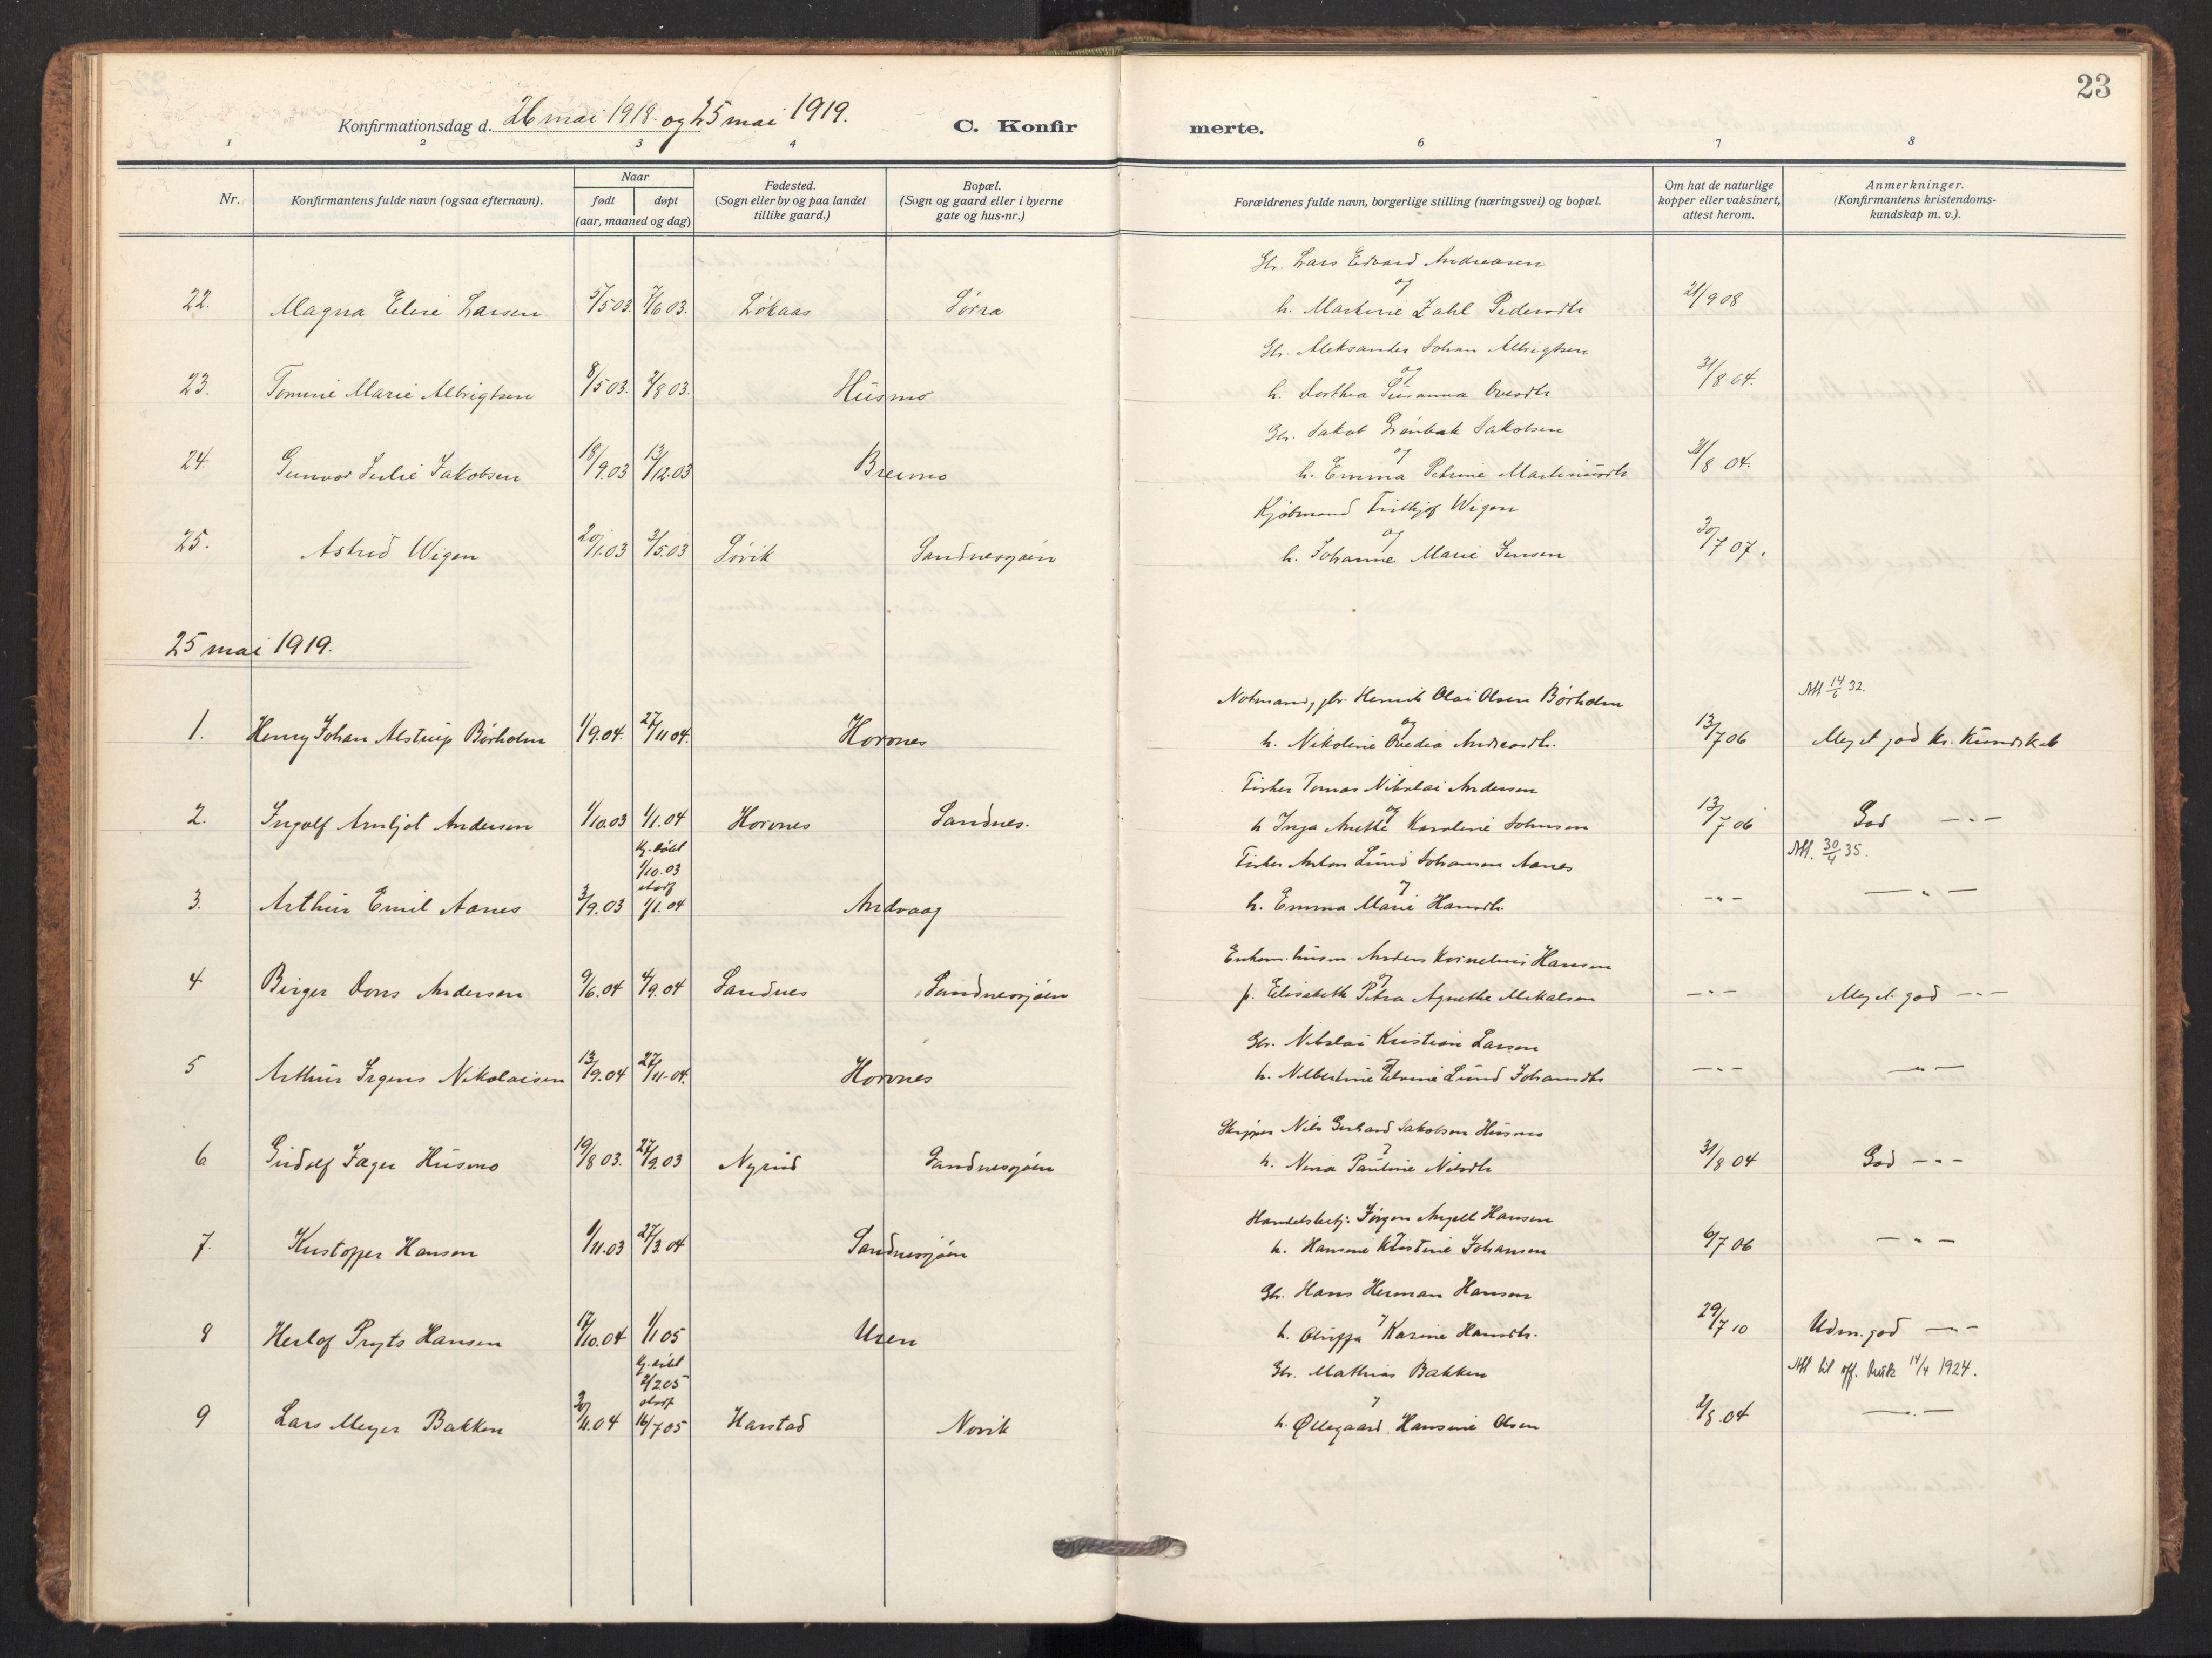 23
Konfirmationsdag d. 26 mai 1918 og 25 mai 1919.
C. Konfirmerte.
1 2 3 4 6 7 8
Nr.
Konfirmantens fulde navn (ogsaa efternavn).
Naar
født døpt
(aar, maaned og dag)
Fødested.
(Sogn eller by og paa landet
tillike gaard.)
Bopæl.
(Sogn og gaard eller i byerne
gate og hus-nr.)
Forældrenes fulde navn, borgerlige stilling (næringsvei) og bopæl.
Om hat de naturlige
kopper eller vaksinert,
attest herom.
Anmerkninger.
(Konfirmantens kristendoms-
kundskap m. v.).
Gbr. Lars Edvard Andreasen
og
22. Magna Elise Larsen 5/5 03. 7/6 03. Løkaas Sørra h. Martine Zahl Pedersdtr 21/9 08
Gbr. Aleksander Johan Albrigtsen
og
23. Tomine Marie Albrigtsen 8/5 03. 2/8 03. Husmo h. Dorthea Susanna Ovesdtr 31/8 04.
Gbr. Jakob Grønbæk Jakobsen
og
24. Gunvor Julie Jakobsen 18/9.03 13/12.03 Breimo h. Emma Petrine Martinusdtr 31/8 04.
Kjøbmand Fridtjof Wigen
og
25. Astrid Wigen 20/1.03 3/5.03 Søvik Sandnessjøen h. Johanne Marie Jensen 30/7 07.
25 mai 1919.
Notmand, gbr. Henrik Olai Olsen Børholm Att 14/6 32.
og
1. Henry Johan Alstrup Børholm 1/9.04. 27/11 04. Horvnes h. Nikoline Ovedia Andreasdtr. 13/7 06 Meget god kr. kundskab
Fisker Tomas Nikolai Andersen
og
2. Ingolf Arnljot Andersen 1/10.03 1/1.04 Horvnes Sandnes. h Inga Anette Karoline Johnsen 13/7 06 God -"-
Fisker Anton Lund Johansen Aanes Att. 30/4 35.
og
3. Arthur Emil Aanes 3/9.03 hj. døbt 1/10.03 stadf 1/1.04 Andvaag h. Emma Marie Hansdtr. -"- -"-
Anders Kornelius Hansen
og
4 Birger Dons Andersen 9/6.04 4/9.04 Sandnes Sandnessjøen h. Elisabeth Petra Agnethe Mikalsen -"- Meget god -"-
Gbr. Nikolai Kristian Larsen
og
5 Arthur Irgens Nikolaisen 13/9.04 27/11-04. Horvnes h. Albertine Edvine Lund Johansdtr -"- -"-
Skipper Nils Gerhard Jakobsen Husmo
og
6 Gudolf Jæger Husmo 19/8 03. 27/9.03 Nyrud Sandnessjøen h. Nora Pauline Nilsdtr 31/8 04 God -"-
Handelsbetj. Jørgen Angell Hansen
og
7. Kristoffer Hansen 1/11.03 27/3.04 Sandnessjøen h. Hansine Kristine Johansen 6/7 06 -"-
Gbr. Hans Herman Hansen
og
8 Herlof Pryts Hansen 17/10.04 1/1 05 Uren h. Oluffa Karine Hansdtr. 29/7 10 Udm. god -"-
Gbr. Mathias Bakken Att til off. bruk 14/4 1924.
og
9 Lars Meyer Bakken 30/11.04 hj. døbt 2/2 05 stadf 16/7 05 Harstad Novik h. Øllegaard Hansine Olsen 2/8.04 -"-